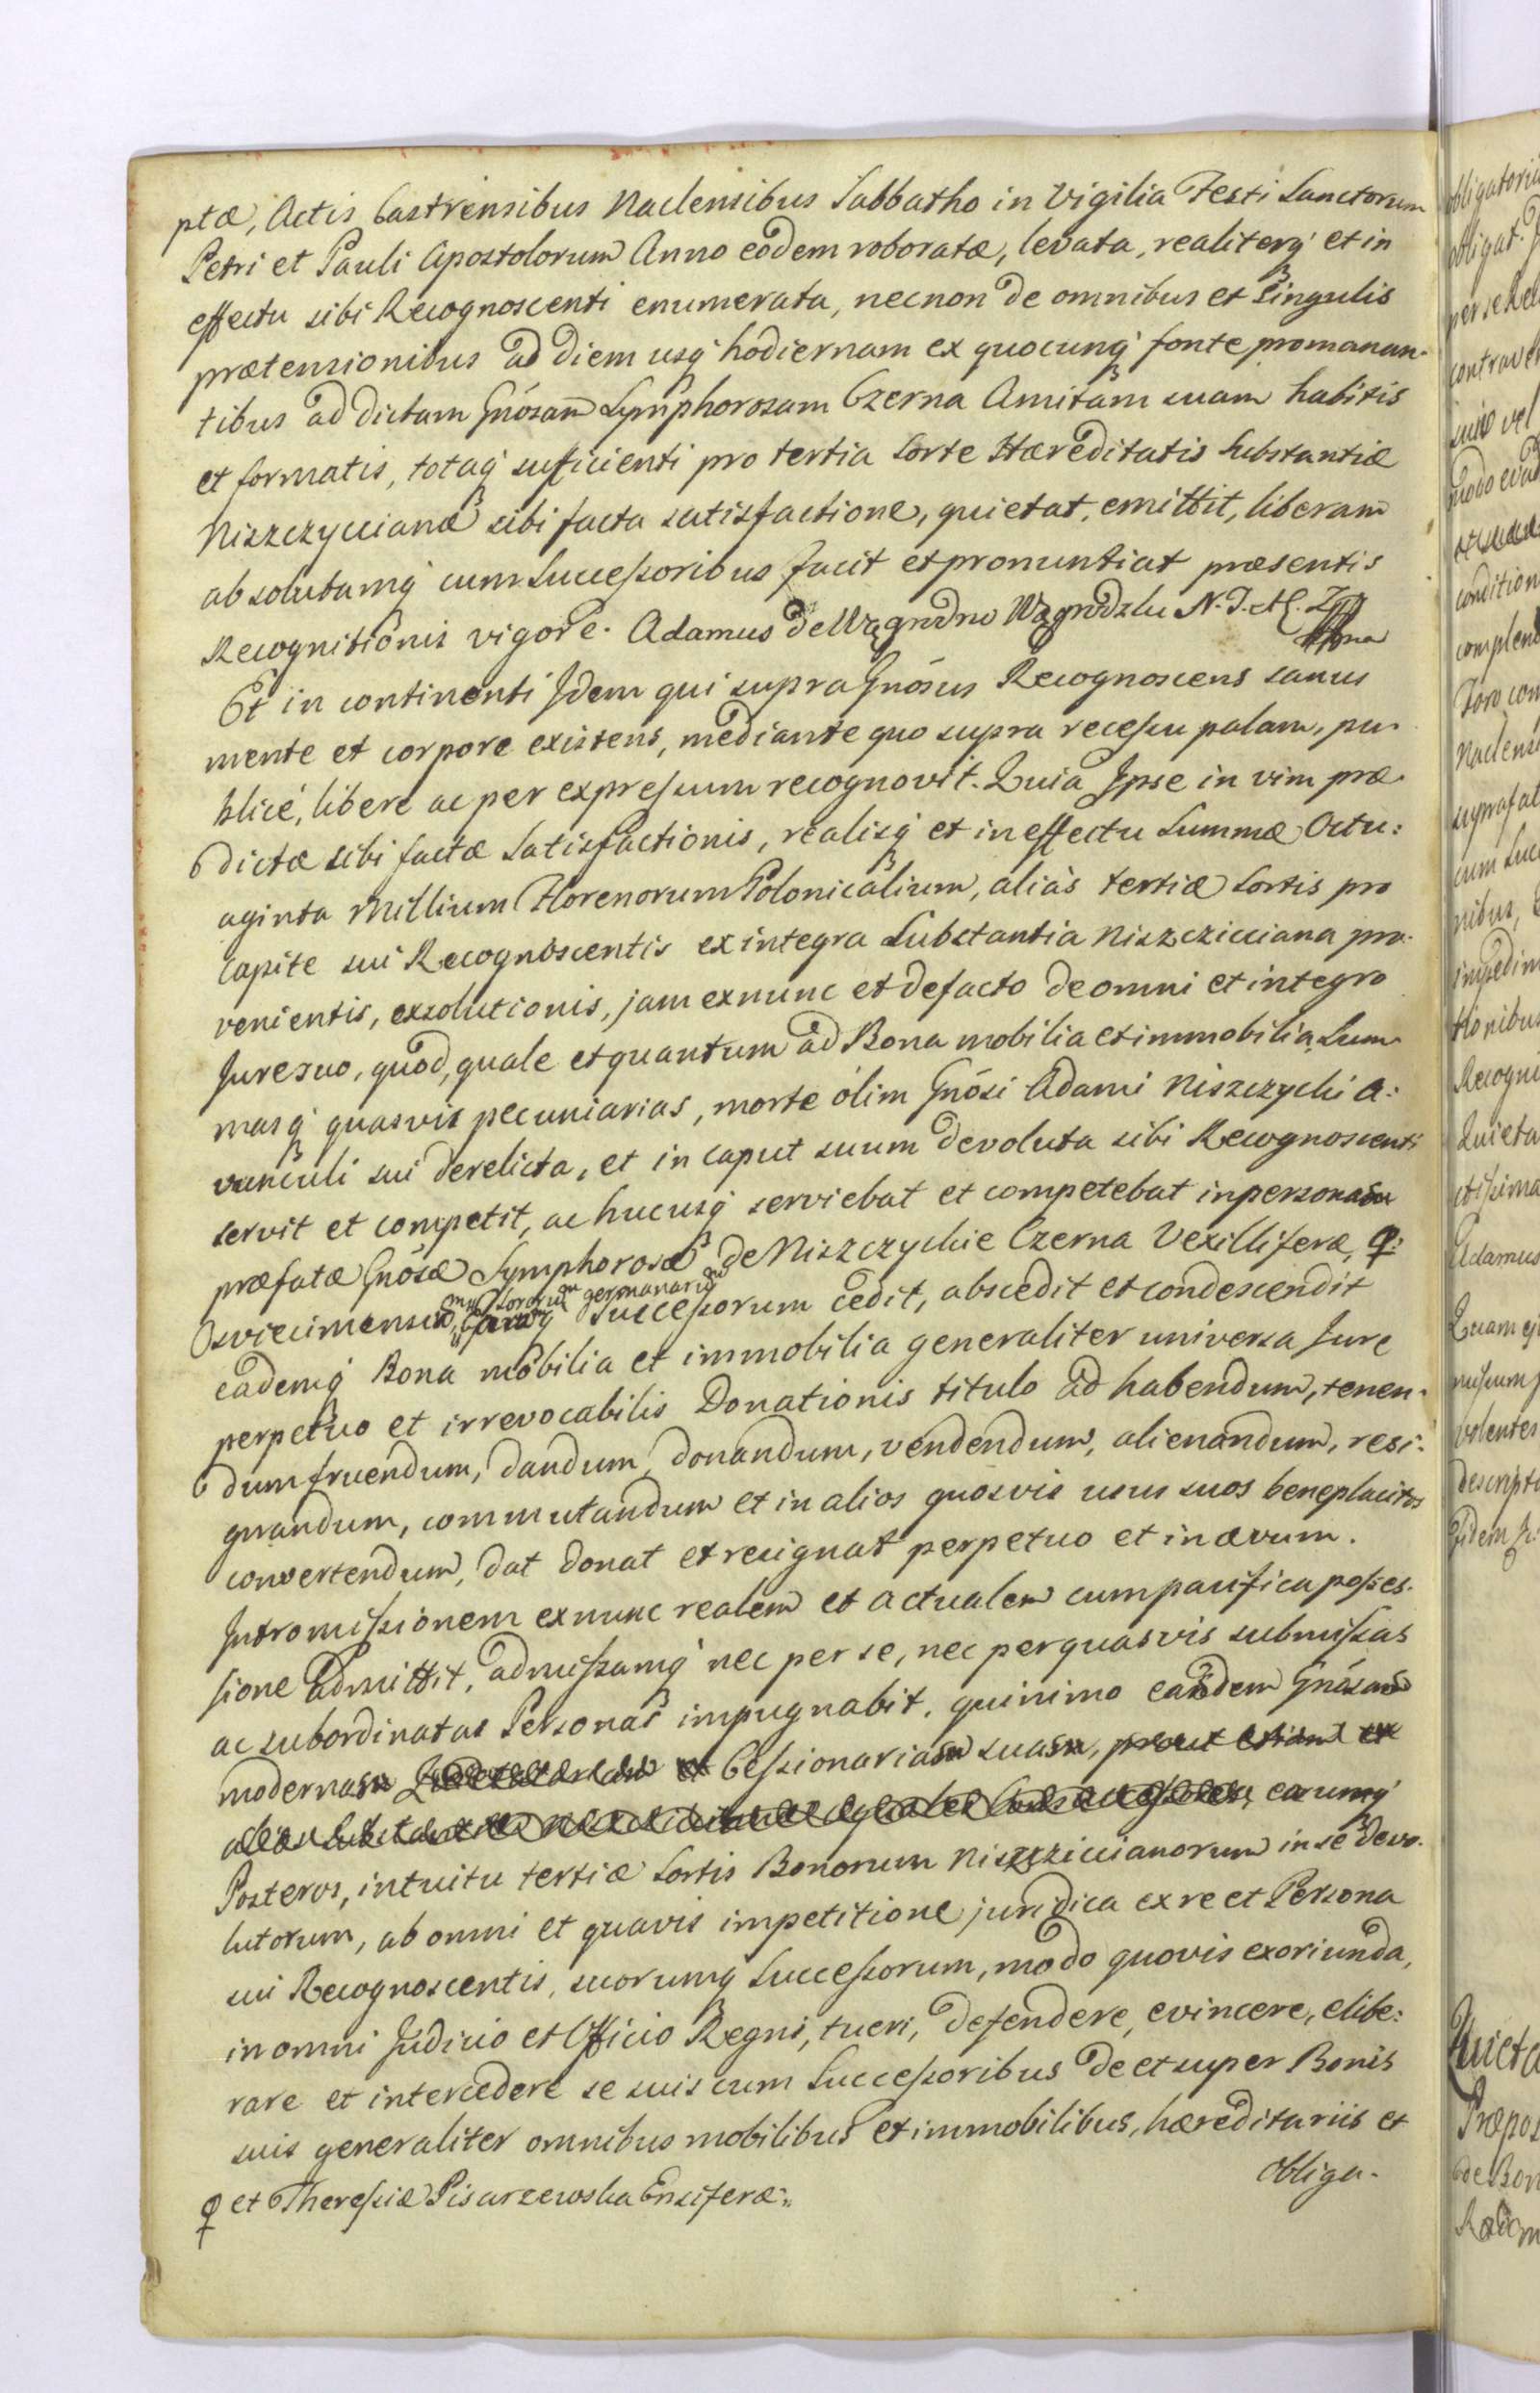 ptæ, Actis Castrensibus Naclensibus Sabbatho in Vigilia Festi Sanctorum
Petri et Pauli Apostolorum Anno eodem roboratæ, levata, realiterq́ et in
effectu sibi Recognoscenti enumerata, necnon de omnibus et singulis
prætensionibus ad diem usq́ hodiernam ex quocunq́ fonte promanan-
tibus ad dictam Gnósam Symphorosam Czerna Amitam suam habitis
et formatis, totaq́ suficienti pro tertia Sorte Hæreditatis Substantiæ
Niszczyccianæ sibi facta satisfactione, quietat, emittit, liberam
absolutamq́ cum Successoribus facit et pronuntiat præsentis
Recognitionis vigore. Adamus de Wągrodno Wągrodzki N. J.
Et in continenti Idem qui supra Gnósus Recognoscens sanus
mente et corpore existens, mediante quo supra recessu palam, pu-
blicé, libere ac per expressum recognovit. Quia Ipse in vim præ-
dictæ sibi factæ Satisfactionis, realisq́ et in effectu Summæ Octu:
aginta Millium Florenorum Polonicalium, aliàs tertiæ Sortis pro
Capite sui Recognoscentis ex integra Substantia Niszczicciana pro-
venientis, exsolutionis, jam exnunc et defacto de omni et integro
Jure suo, quod, quale et quantum ad Bona mobilia et immobilia, Sum-
masq́ quasvis pecuniarias, morte ólim Gnósi Adami Niszczycki A:
vunculi sui derelicta, et in caput suum devoluta sibi Recognoscenti
servit et competit, ac hucusq́ serviebat et competebat in personam
præfatæ Gnósæ Symphorosæ de Niszczyckie Czerna Vexilliferæ ϙ:
Sororum germanarum
Osviecimensis, Successorum cedit, abscedit et condescendit
eademq́ Bona mobilia et immobilia generaliter universa Jure
perpetuo et irrevocabilis Donationis titulo ad habendum, tenen-
dum fruendum, dandum, donandum, vendendum, alienandum, resi:
gnandum, commutandum et in alios quosvis usus suos beneplacitos
convertendum, dat donat et resignat perpetuo et in ævum.
Intromissionem exnunc realem et actualem cum pacifica posses-
sione admittit, admissamq́ nec per se, nec per quasvis submissas
ac subordinatas Personas impugnabit, quinimo easdem Gnósas
modernas Cessionarias suas, prout etiam ex
earumq́
Posteros, intuitu tertiæ Sortis Bonorum Niszcziccianorum in se devo-
lutorum, ab omni et quavis impetitione juridica ex re et Persona
sui Recognoscentis, suorumq́ Successorum, modo quovis exoriunda,
in omni Judicio et Officio Regni, tueri, defendere, evincere, elibe:
rare et intercedere se suis cum Successoribus de et super Bonis
suis generaliter omnibus mobilibus et immobilibus, hæreditariis et
obliga-
ϙ et Theresiæ Pisarzewska Ensiferæ